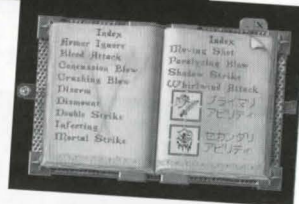 Index
Armor Ignore
Bleed Attack
Concussion Blow
Crushing Blow
Disarm
Dismount
Double Strike
Infecting
Mortal Strike
Index
Moving Shot
Paralyzing Blow
Shadow Strike
Whirlwind Attack
プライマリ
アビリティ
セカンダリ
アビリティ